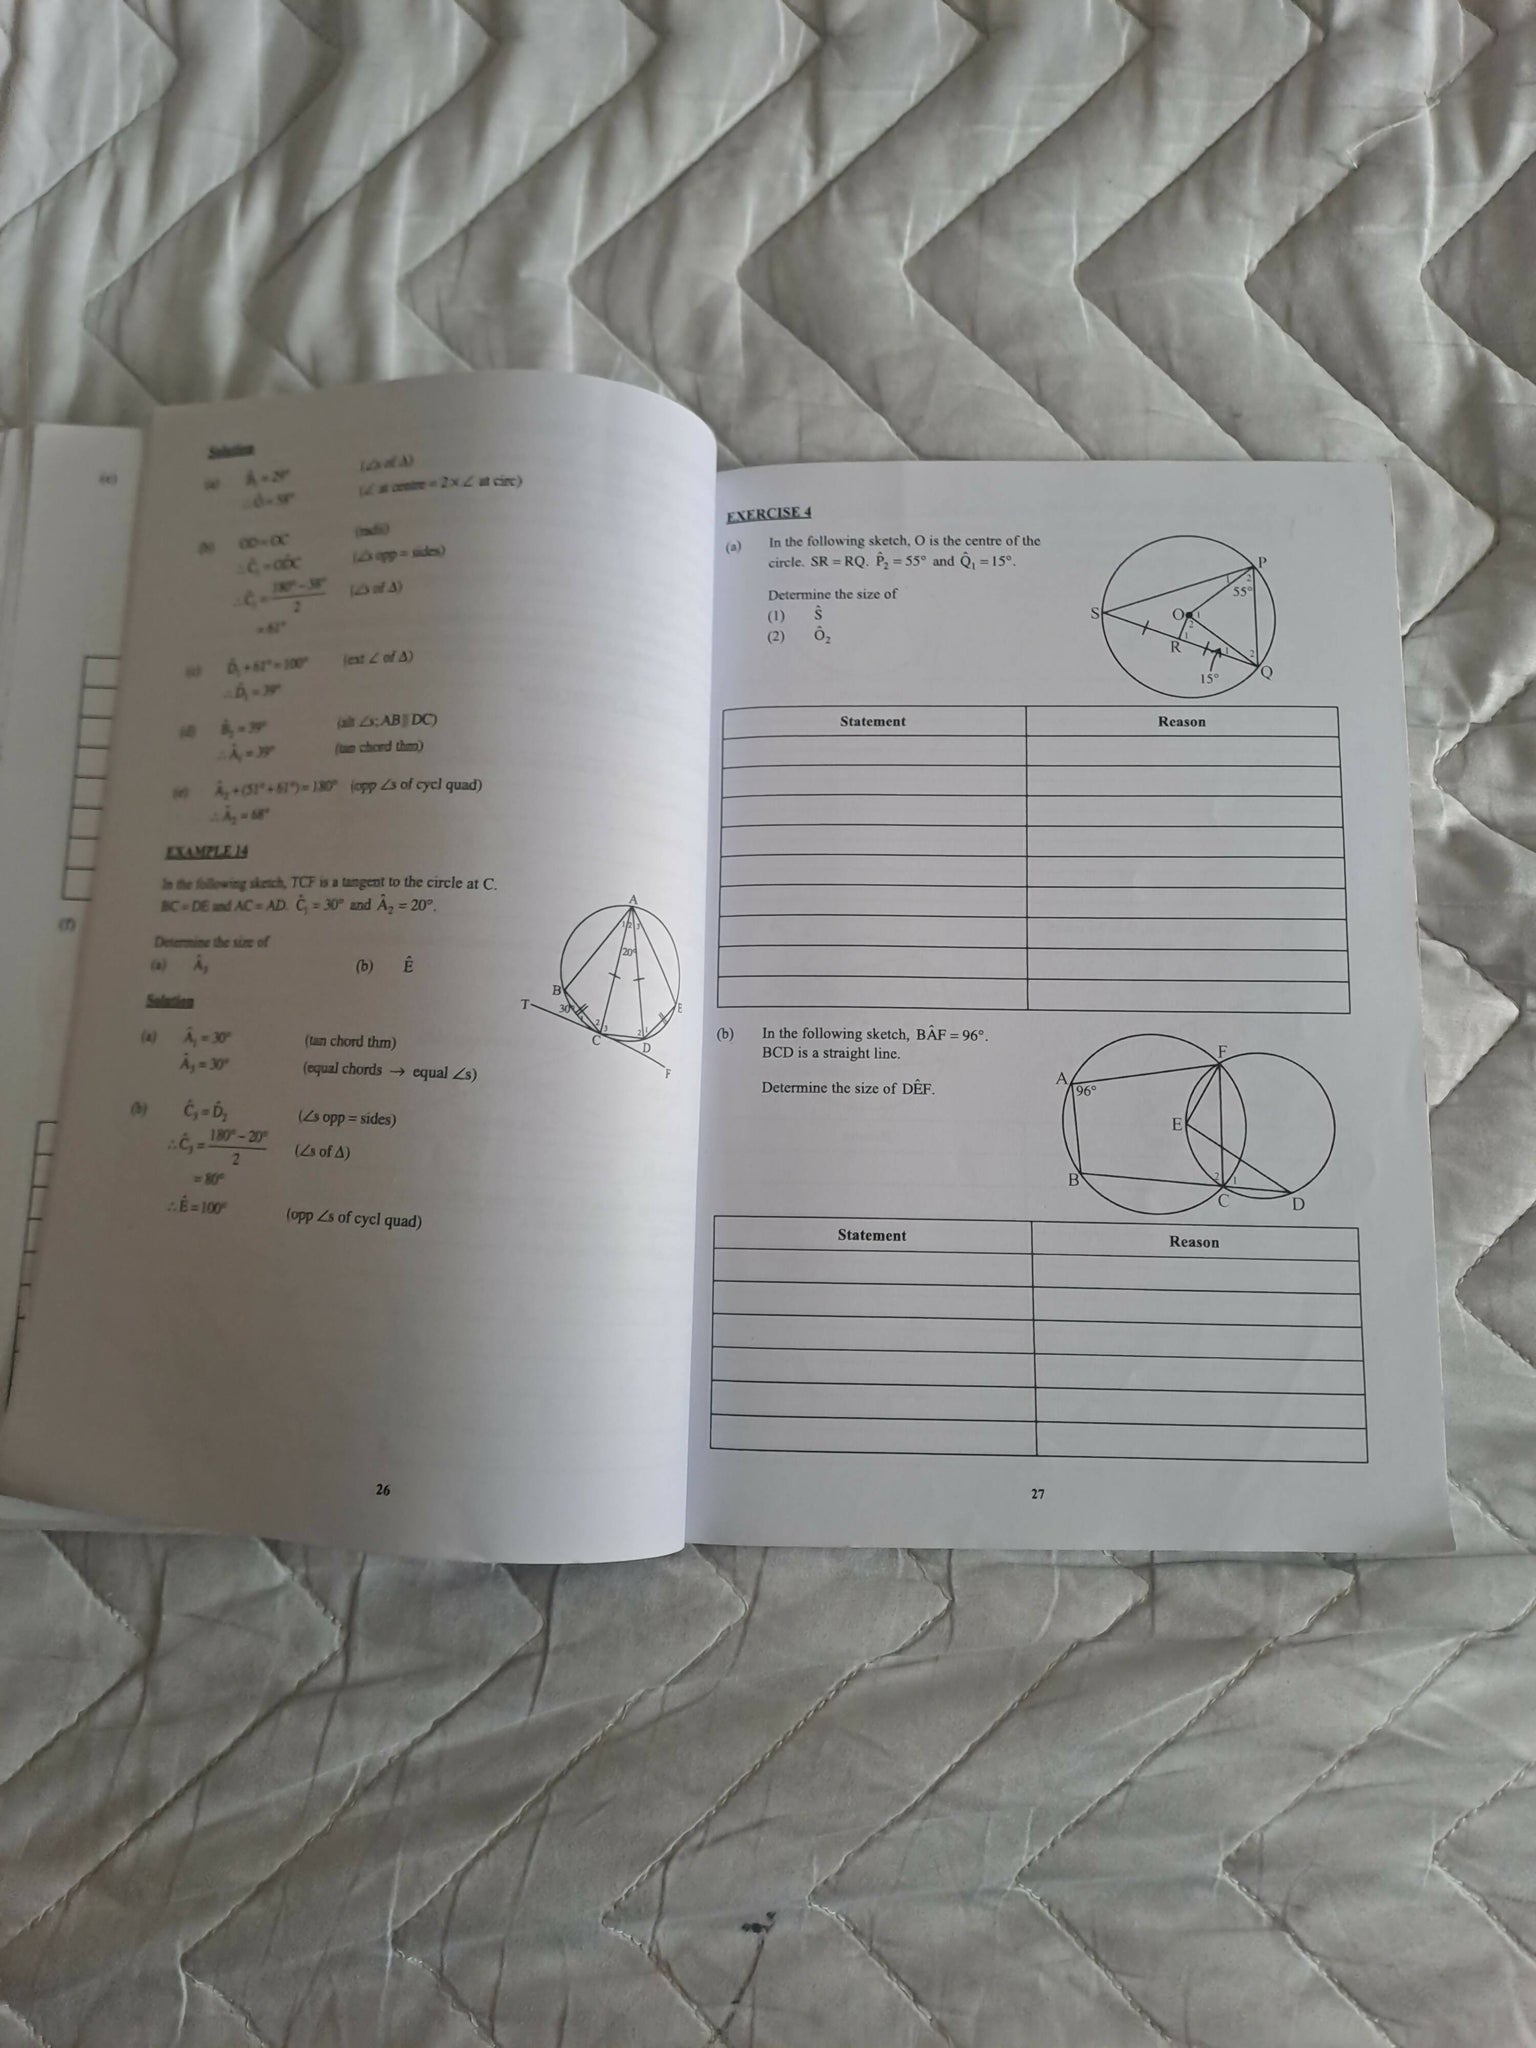 (e)
(f)
Solution
(a) B̂₁ = 29° (∠s of Δ)
∴ Ô = 58° (∠ at centre = 2 × ∠ at circ)
(b) OD = OC (radii)
∴ Ĉ₁ = OD̂C (∠s opp = sides)
∴ Ĉ₁ = (180° − 58°)/2 (∠s of Δ)
= 61°
(c) D̂₁ + 61° = 100° (ext ∠ of Δ)
∴ D̂₁ = 39°
(d) B̂₂ = 39° (alt ∠s; AB || DC)
∴ Â₁ = 39° (tan chord thm)
(e) Â₂ + (51° + 61°) = 180° (opp ∠s of cycl quad)
∴ Â₂ = 68°
EXAMPLE 14
In the following sketch, TCF is a tangent to the circle at C.
BC = DE and AC = AD. Ĉ₁ = 30° and Â₂ = 20°.
Determine the size of
(a) Â₃ (b) Ê
A
1 2 3
20°
B
E
T
30°
2 3
2 1
C
D
F
Solution
(a) Â₁ = 30° (tan chord thm)
Â₃ = 30° (equal chords → equal ∠s)
(b) Ĉ₃ = D̂₂ (∠s opp = sides)
∴ Ĉ₃ = (180° − 20°)/2 (∠s of Δ)
= 80°
∴ Ê = 100° (opp ∠s of cycl quad)
26
EXERCISE 4
(a) In the following sketch, O is the centre of the
circle. SR = RQ. P̂₂ = 55° and Q̂₁ = 15°.
Determine the size of
(1) Ŝ
(2) Ô₂
P
1 2
55°
S
O 1
2
1
R
1 2
Q
15°
Statement Reason
(b) In the following sketch, BÂF = 96°.
BCD is a straight line.
Determine the size of DÊF.
F
A
96°
E
B
2 1
C
D
Statement Reason
27